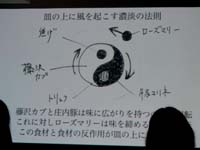 皿の上に風を起こす濃淡の法則
焦げ
ローズマリー
藤沢カブ
トリュフ
藤沢カブと庄内豚は味に広がりを持つ
転
これに対しローズマリーは味を締める
この食材と食材の反作用が皿の上に